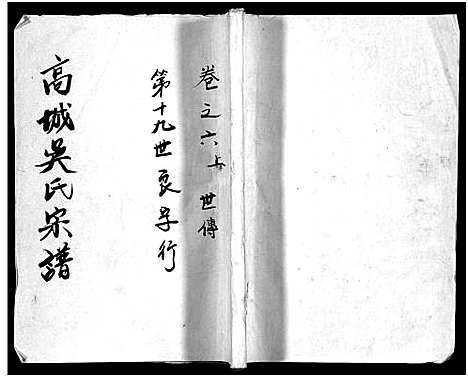 卷之六上 世傳
第十九世良字行
高城吳氏宗譜